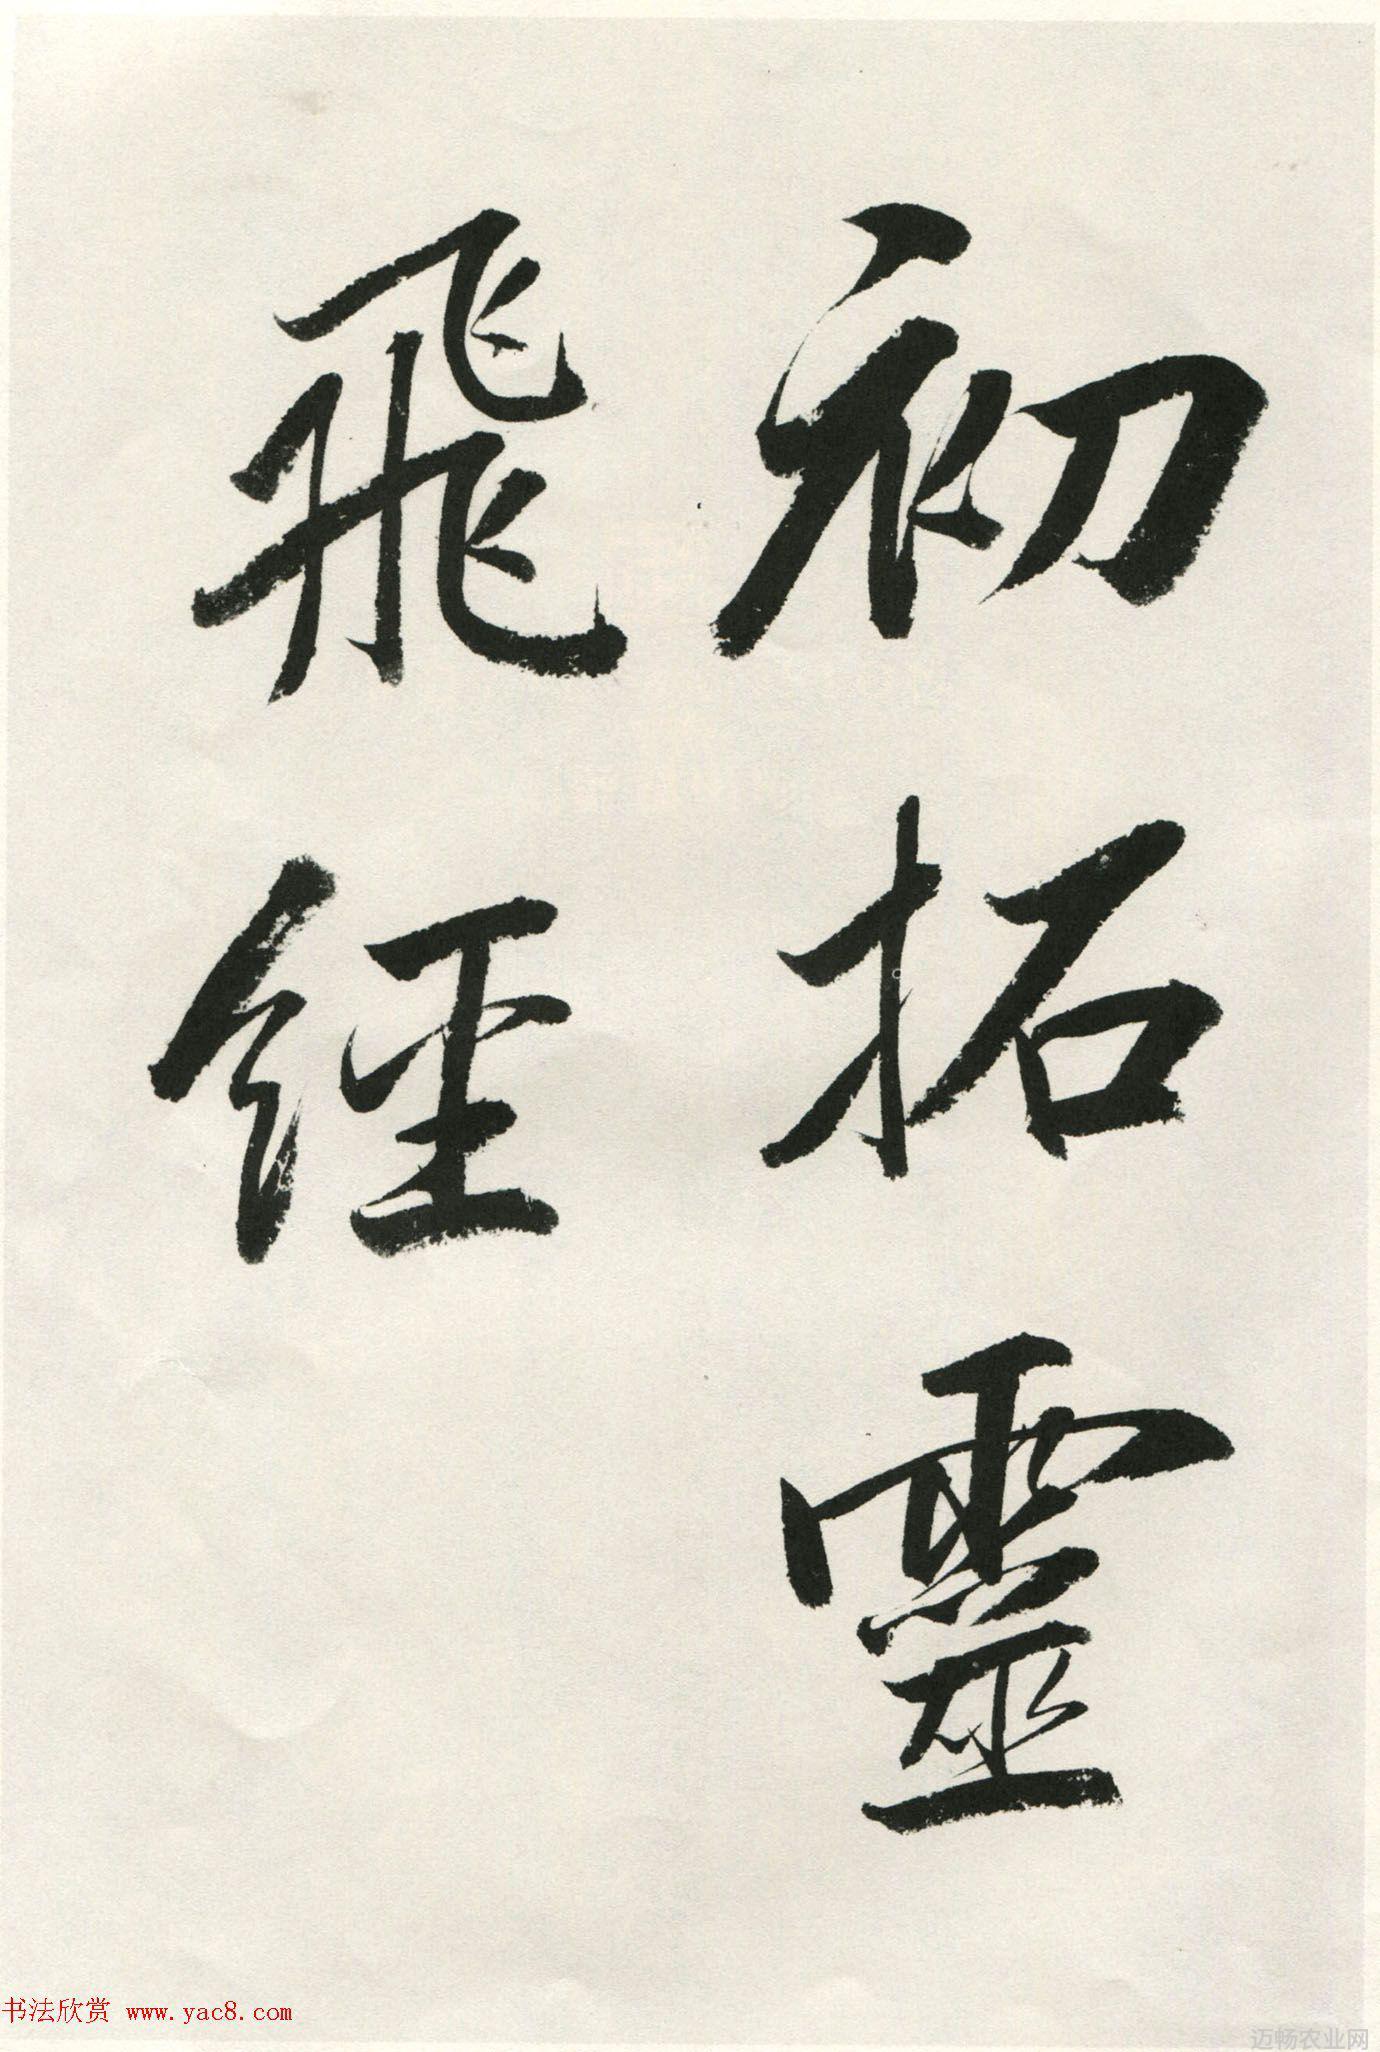 初拓靈
飛經
书法欣赏 www.yac8.com
迈畅农业网